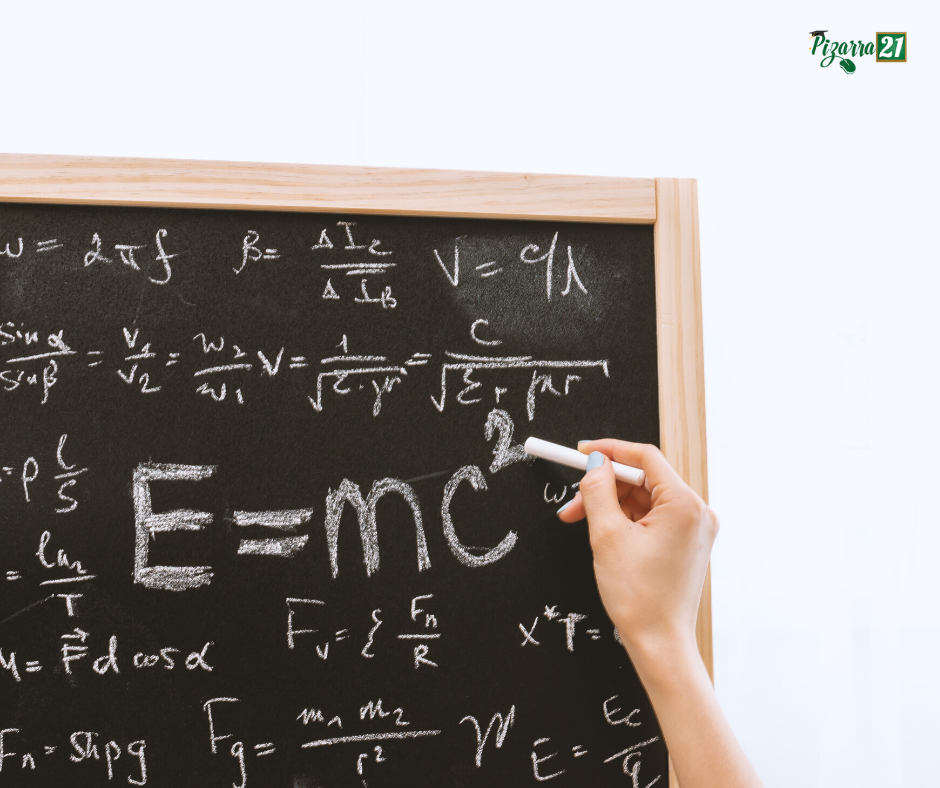 Pizarra 21
ω = 2πf β = ΔI_C / ΔI_B V = c/λ
sin α / sin β = v₁ / v₂ = w₂ / w₁ V = 1 / √(ε · μ) = c / √(εr μr)
= ρ l / S E = mc² ω =
= ln₂ / T
M = F⃗ d cos α F_v = ξ F_n / R x * T =
F_n = Shρg F_g = m₁ m₂ / r² E = E_C / q